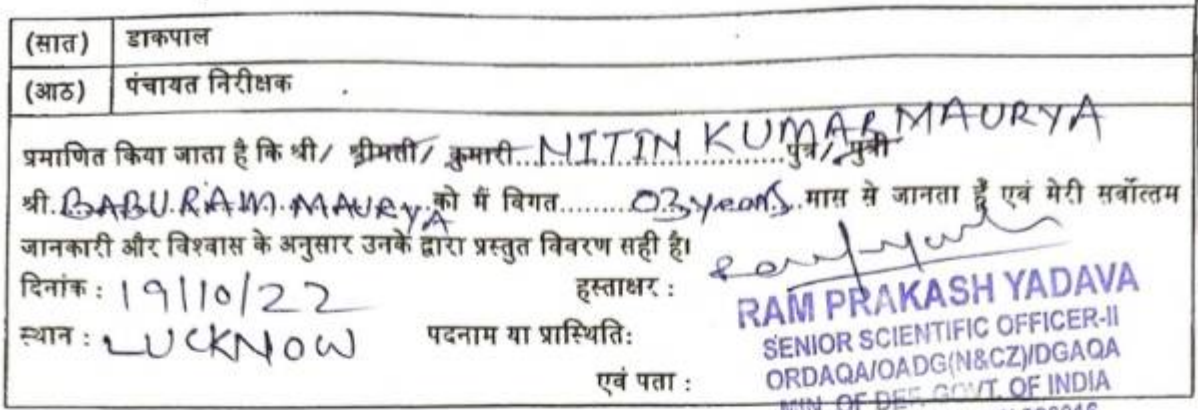 (सात) डाकपाल
(आठ) पंचायत निरीक्षक
प्रमाणित किया जाता है कि श्री/ श्रीमती/ कुमारी..NITIN KUMAR MAURYA पुत्र/ पुत्री
श्री.BABU.RAM.MAURYA को मैं विगत.........03 years..मास से जानता हूँ एवं मेरी सर्वोत्तम
जानकारी और विश्वास के अनुसार उनके द्वारा प्रस्तुत विवरण सही है।
दिनांक : 19/10/22 हस्ताक्षर :
RAM PRAKASH YADAVA
स्थान : LUCKNOW पदनाम या प्रास्थिति:
SENIOR SCIENTIFIC OFFICER-II
ORDAQA/OADG(N&CZ)/DGAQA
एवं पता :
MIN. OF DEF. GOVT. OF INDIA